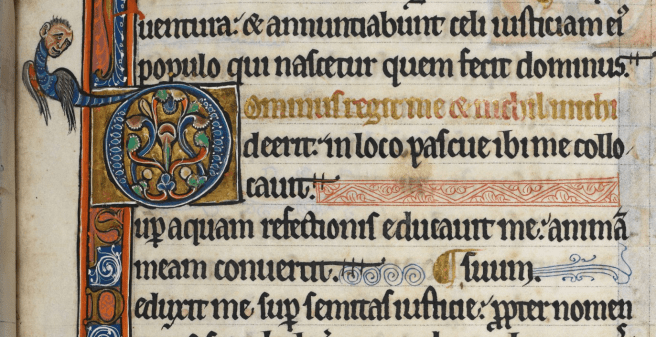 uentura: & annuntiabunt celi iusticiam eiꝰ
populo qui nascetur quem fecit dominus.
Dominus regit me & nichil michi
deerit: in loco pascue ibi me collo
cauit.
Suꝑ aquam refectionis educauit me: animā
meam conuertit. ¶ suum.
Deduxit me suꝑ semitas iusticie: ꝓpter nomen